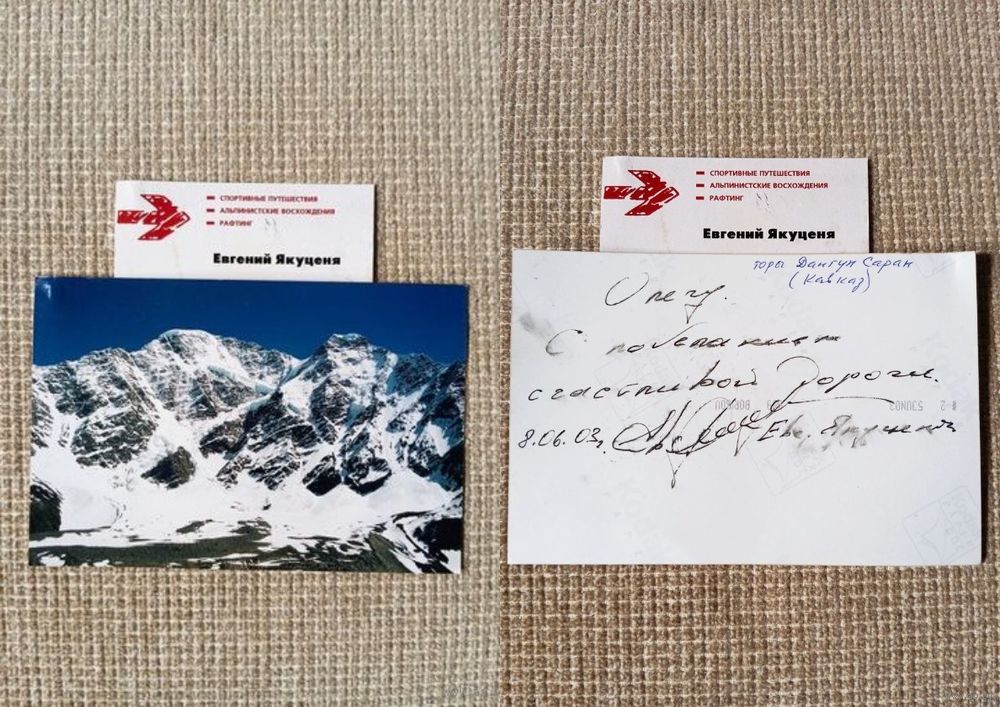 СПОРТИВНЫЕ ПУТЕШЕСТВИЯ
АЛЬПИНИСТСКИЕ ВОСХОЖДЕНИЯ
РАФТИНГ
Евгений Якуценя
СПОРТИВНЫЕ ПУТЕШЕСТВИЯ
АЛЬПИНИСТСКИЕ ВОСХОЖДЕНИЯ
РАФТИНГ
Евгений Якуценя
горы Донгуз Саран
(Кавказ)
Олегу.
С
счастливой дороги.
8.06.03. Евг. Якуценя